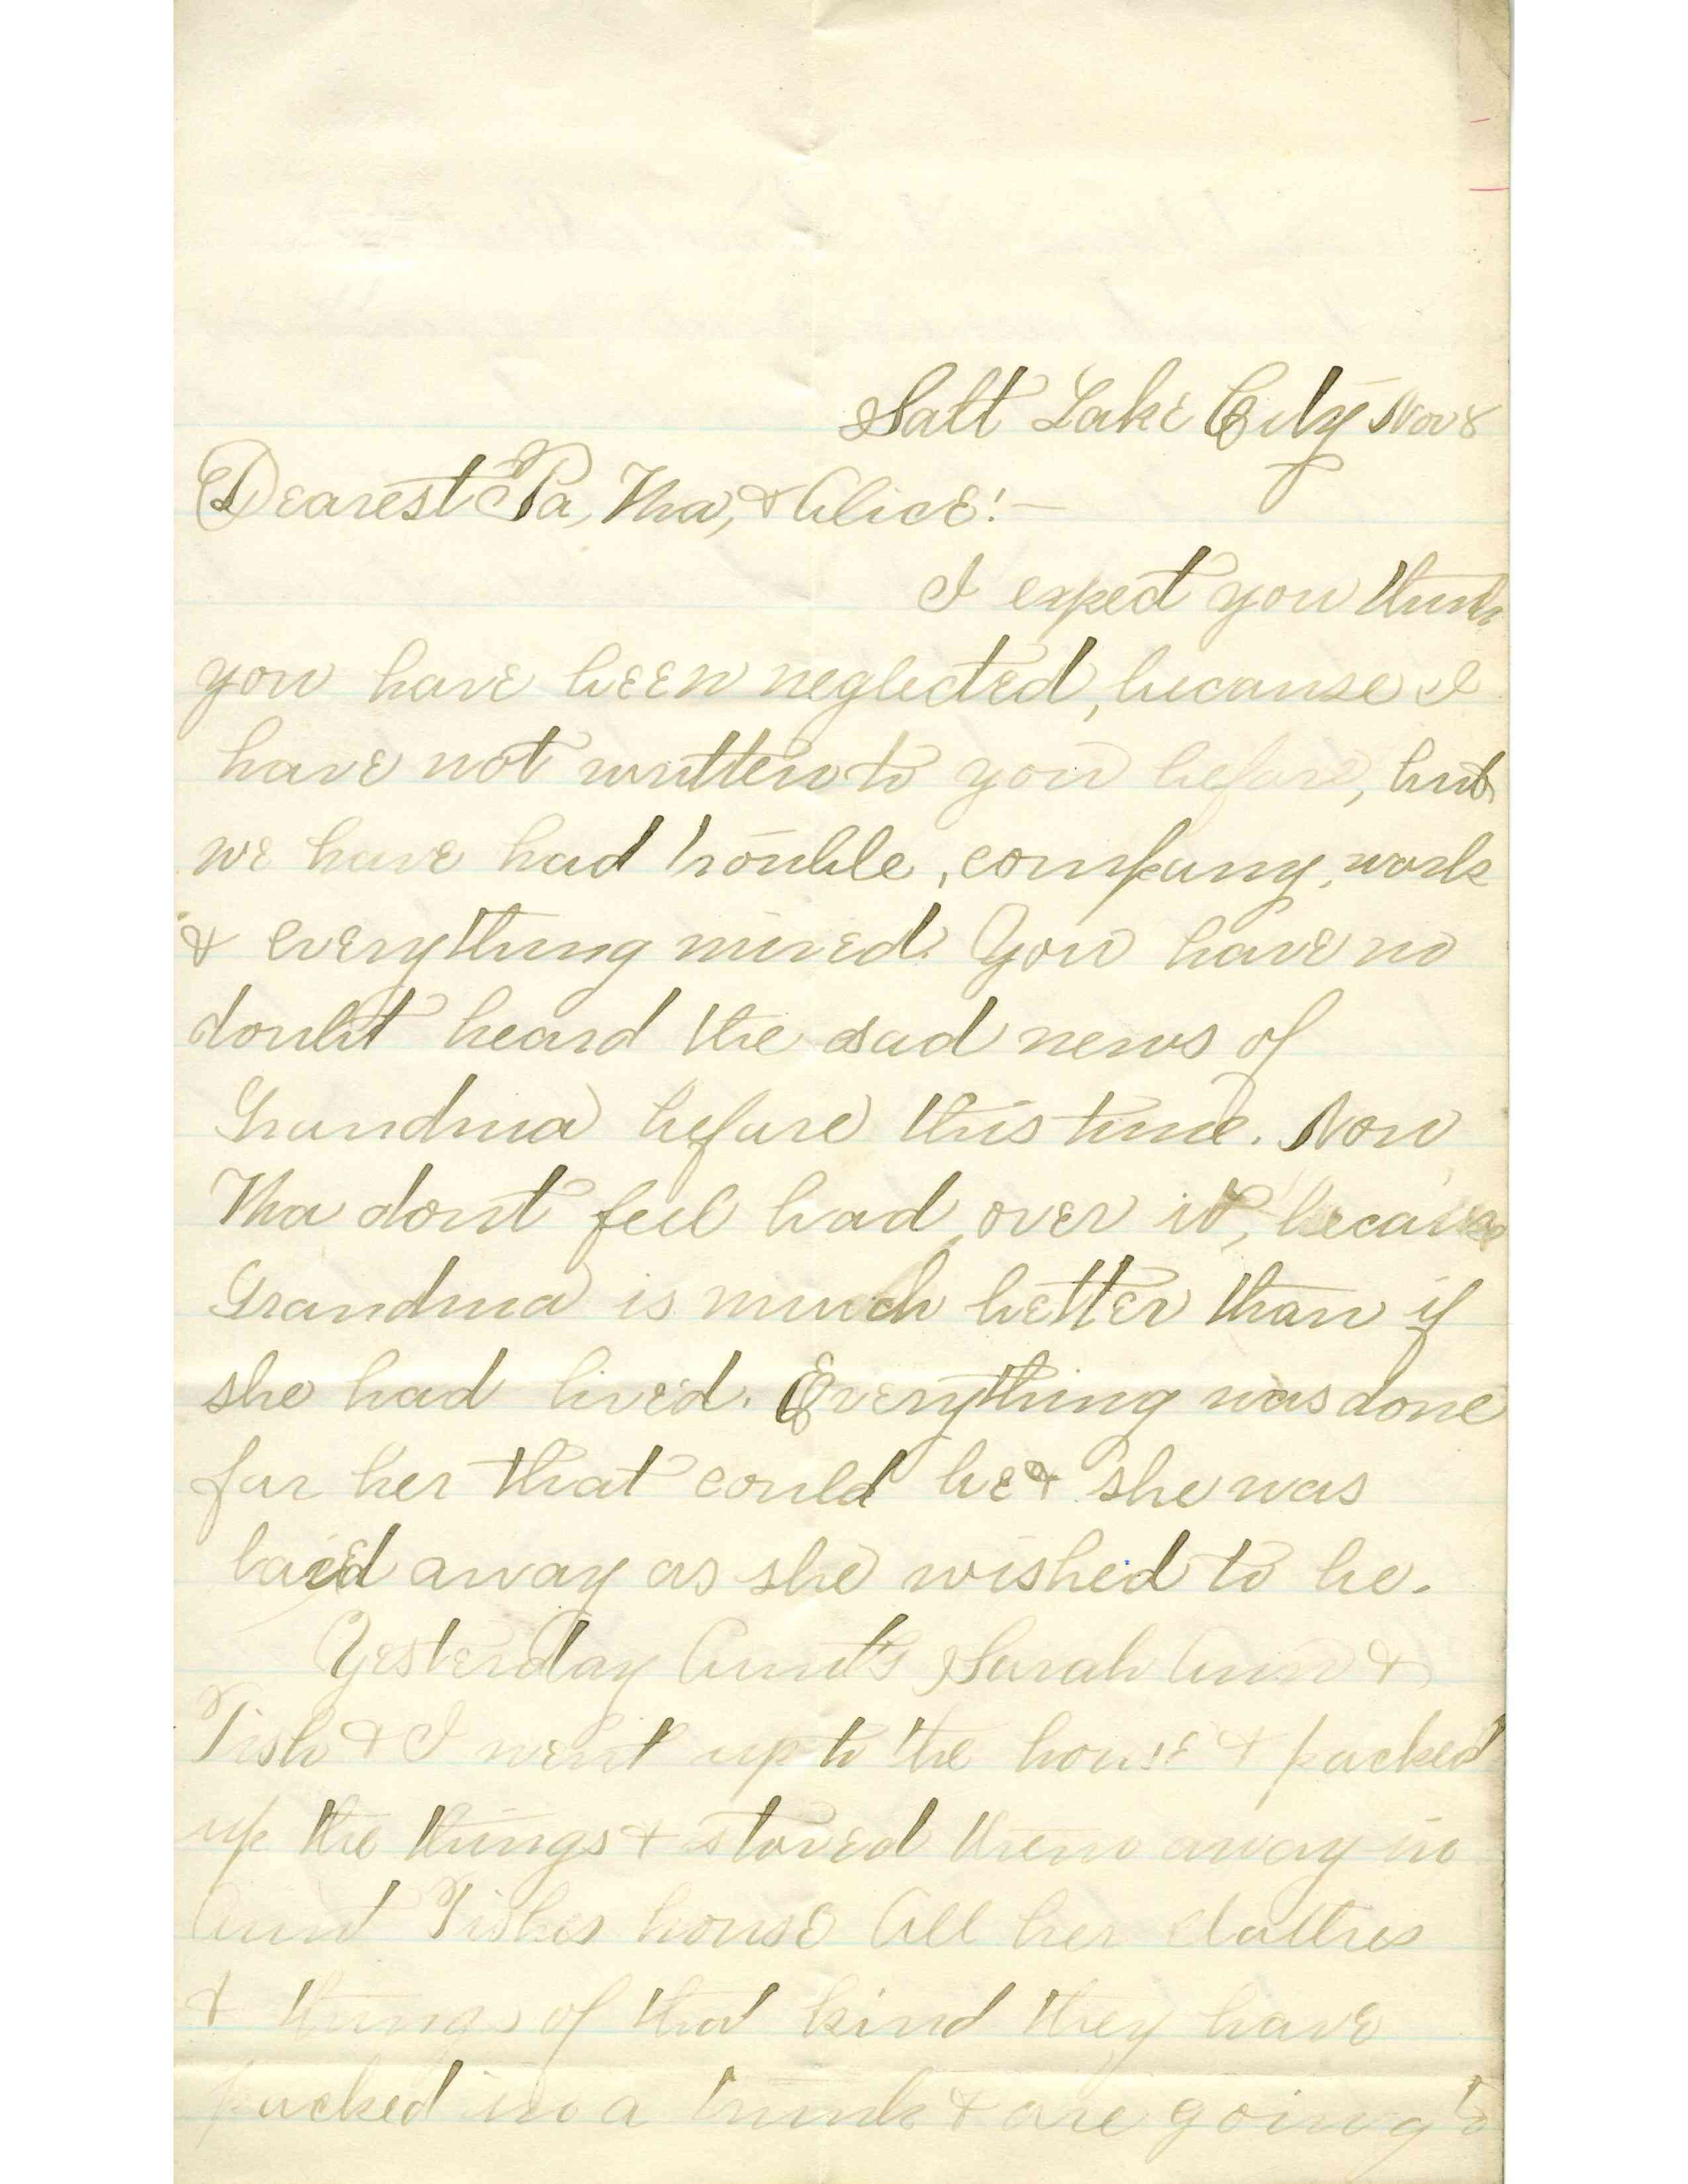 Salt Lake City Nov 8
Dearest Pa, Ma, & Alice! —
I expect you think
you have been neglected, because I
have not written to you before, but
we have had trouble, company, work
& everything mixed. You have no
doubt heard the sad news of
Grandma before this time. Now
Ma dont feel bad over it, because
Grandma is much better than if
she had lived. Everything was done
for her that could be & she was
laid away as she wished to be.
Yesterday Aunts Sarah Ann &
Tish & I went up to the house & packed
up the things & stored them away in
Aunt Tishes house All her clothes
& things of that kind they have
packed in a trunk & are going to